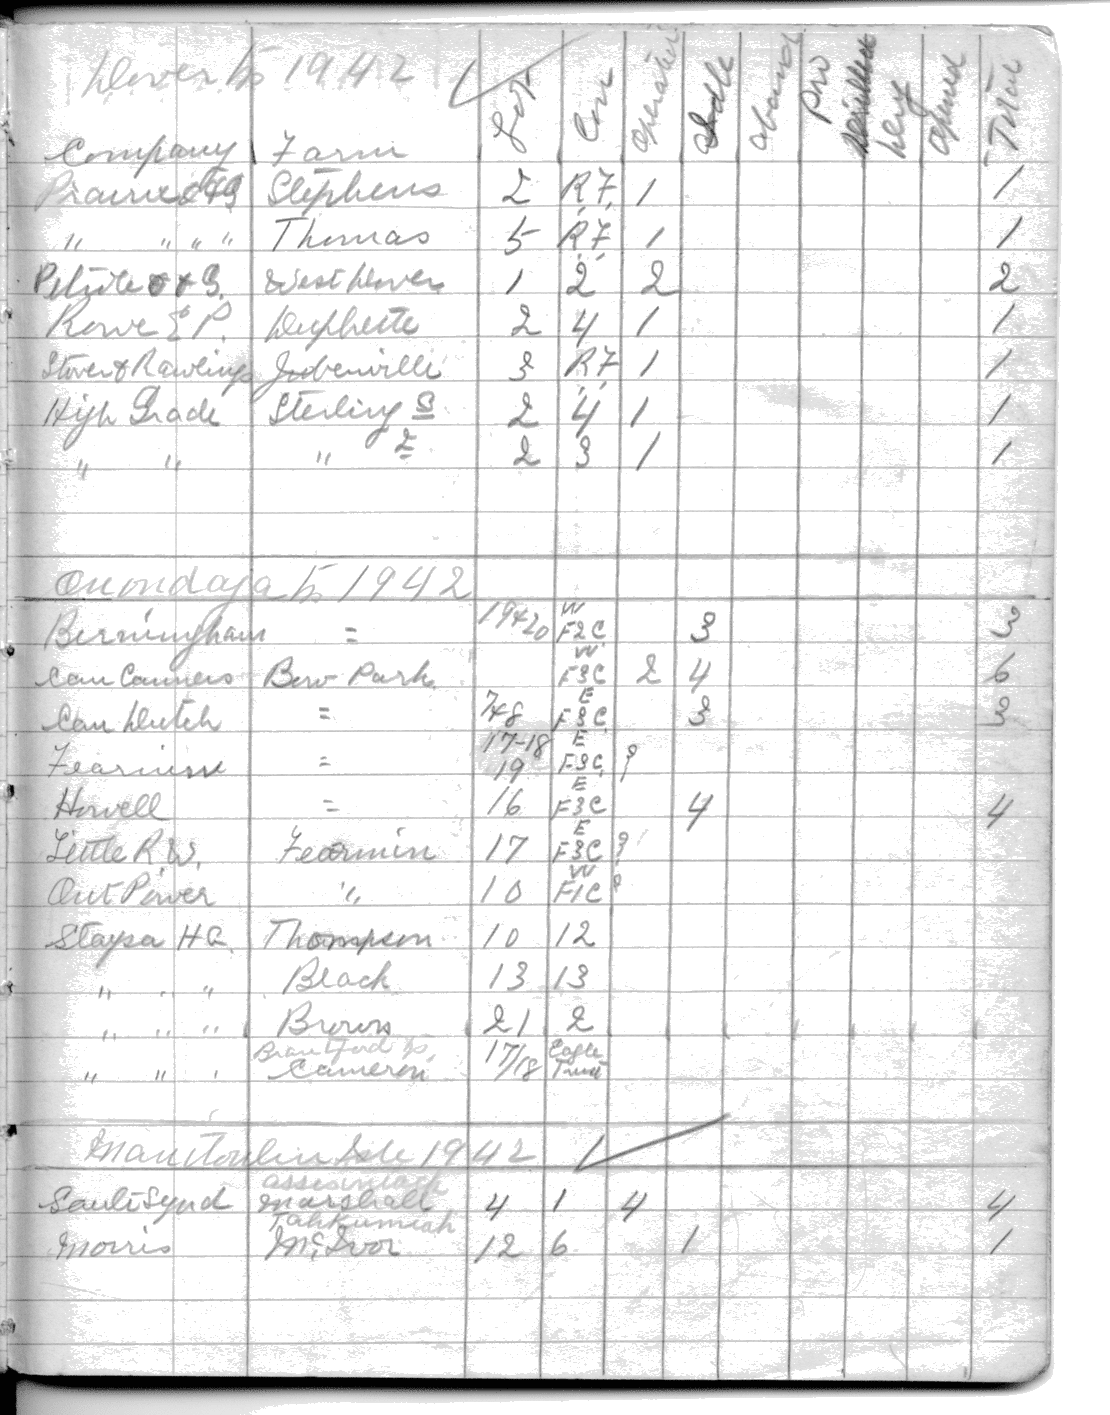 Dover Tp 1942 ✓
Company Farm Lot Con Operated Idle Aband Pro Drilled Dry Opened Total
Prairie O+G Stephens 2 R7 1 1
" " " " Thomas 5 R7 1 1
Petrole O+G. West Dover 1 2 2 2
Rowe E P. 2 4 1 1
Stover & Rawlings Jubenville 3 R7 1 1
High Grade Sterling S 2 4 1 1
" " " E 2 3 1 1
Onondaga Tp 1942
Birmingham = 19+20 W F2C 3 3
Can Canners Bow Park W F3C 2 4 6
Can Dutch = 7+8 E F3C 3 3
Fearman = 17-18 19 E F3C ?
Howell = 16 E F3C 4 4
Little R W. Fearmin 17 E F3C ?
Ont Power " 10 W F1C ?
Staysa H G. Thompson 10 12
" " " Black 13 13
" " " Brown 21 2
Brantford Tp
" " " Cameron 17/18 Eagle Tract
Manitoulin Isle 1942 ✓
Assiginack
Sault Synd Marshall 4 1 4 4
Tahkumiah
Morris McIvor 12 6 1 1